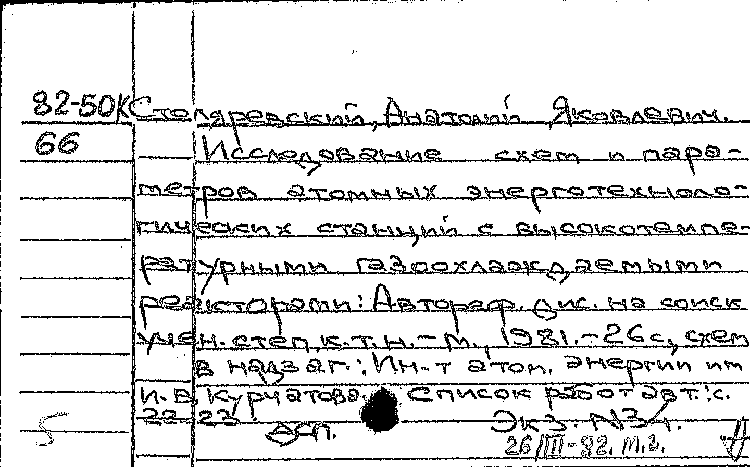 82-50К Столяревский, Анатолий Яковлевич.
66 Исследование схем и пара-
метров атомных энерготехноло-
гических станций с высокотемпе-
ратурными газоохлаждаемыми
реакторами: Автореф. дис. на соиск
учен. степ. к. т. н. - М., 1981. - 26 с., схем
в надзаг.: Ин-т атом. энергии им
И. В. Курчатова. Список работ авт.: с.
22-23
ДСП. Экз. N34.
5 26/III-82. т.г.